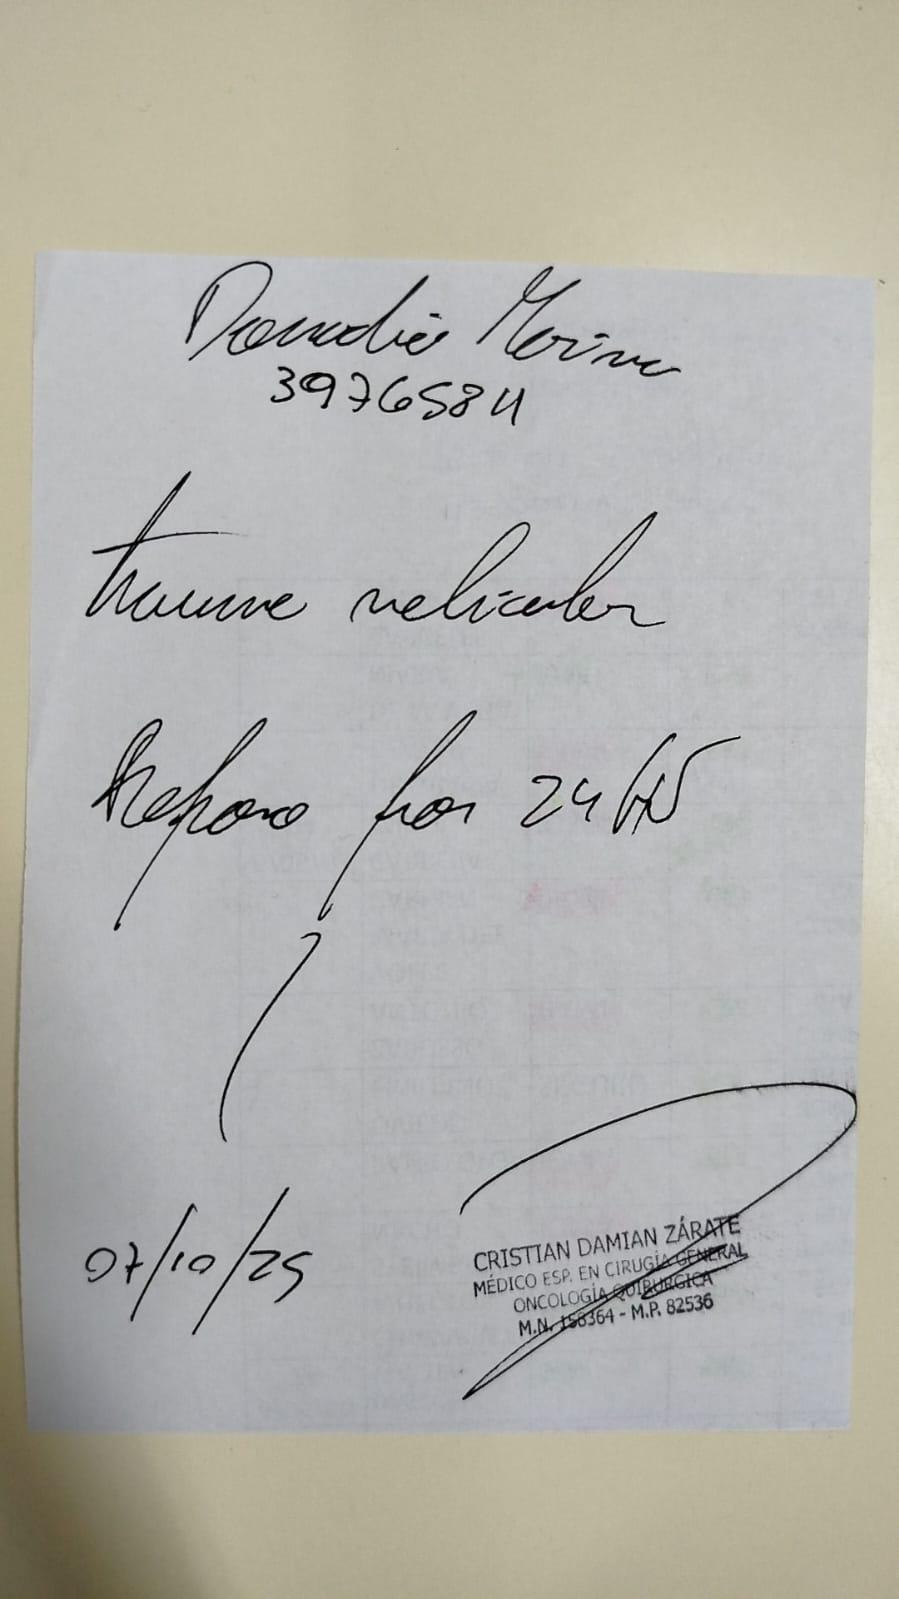 39765811
trauma vehicular
Reposo por 24 hs
07/10/25
CRISTIAN DAMIAN ZÁRATE
MÉDICO ESP. EN CIRUGÍA GENERAL
ONCOLOGÍA QUIRURGICA
M.N. 158364 - M.P. 82536